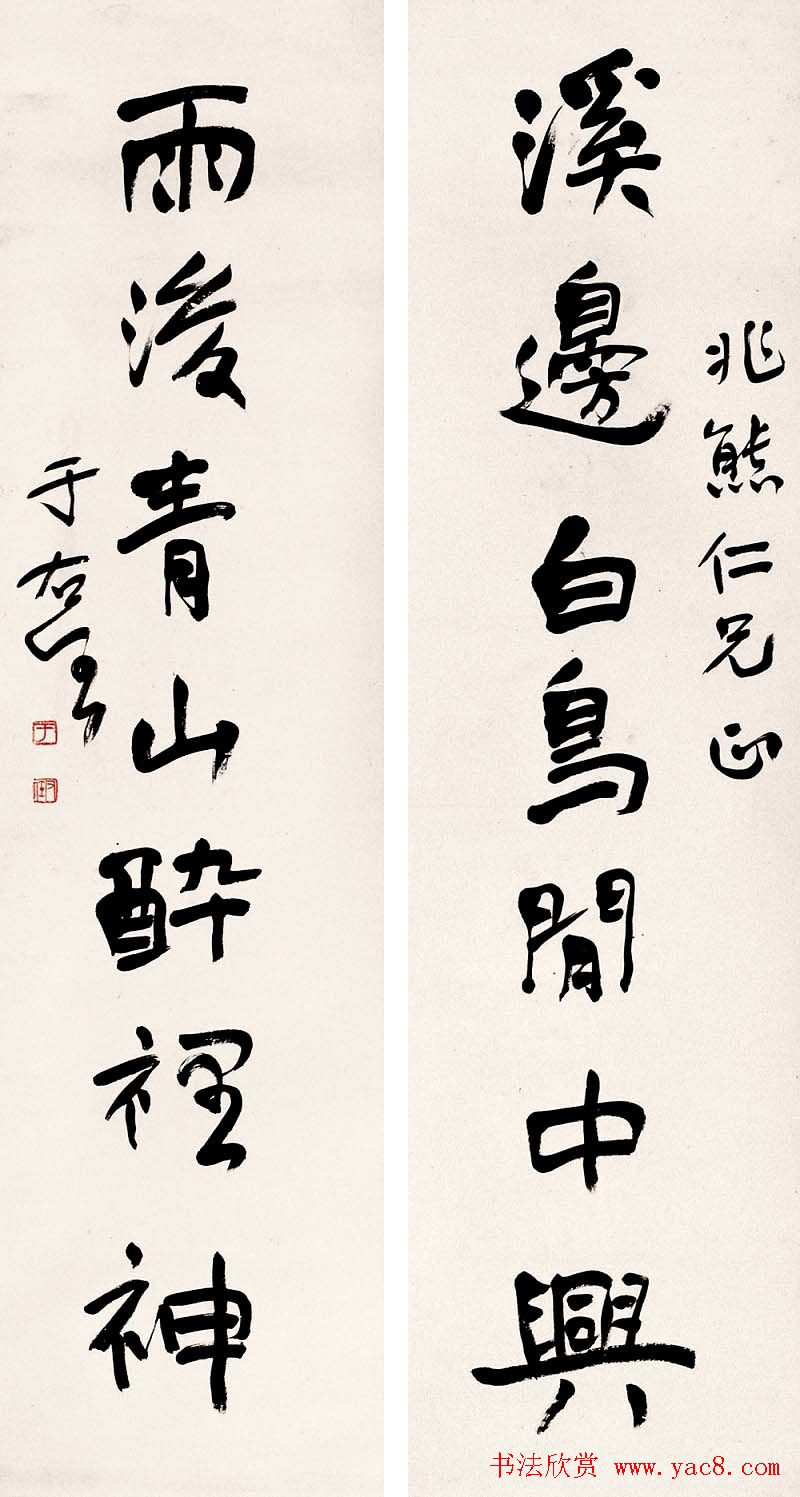 兆熊仁兄正
溪邊白鳥閒中興
雨後青山醉裡神
于右任
书法欣赏 www.yac8.com